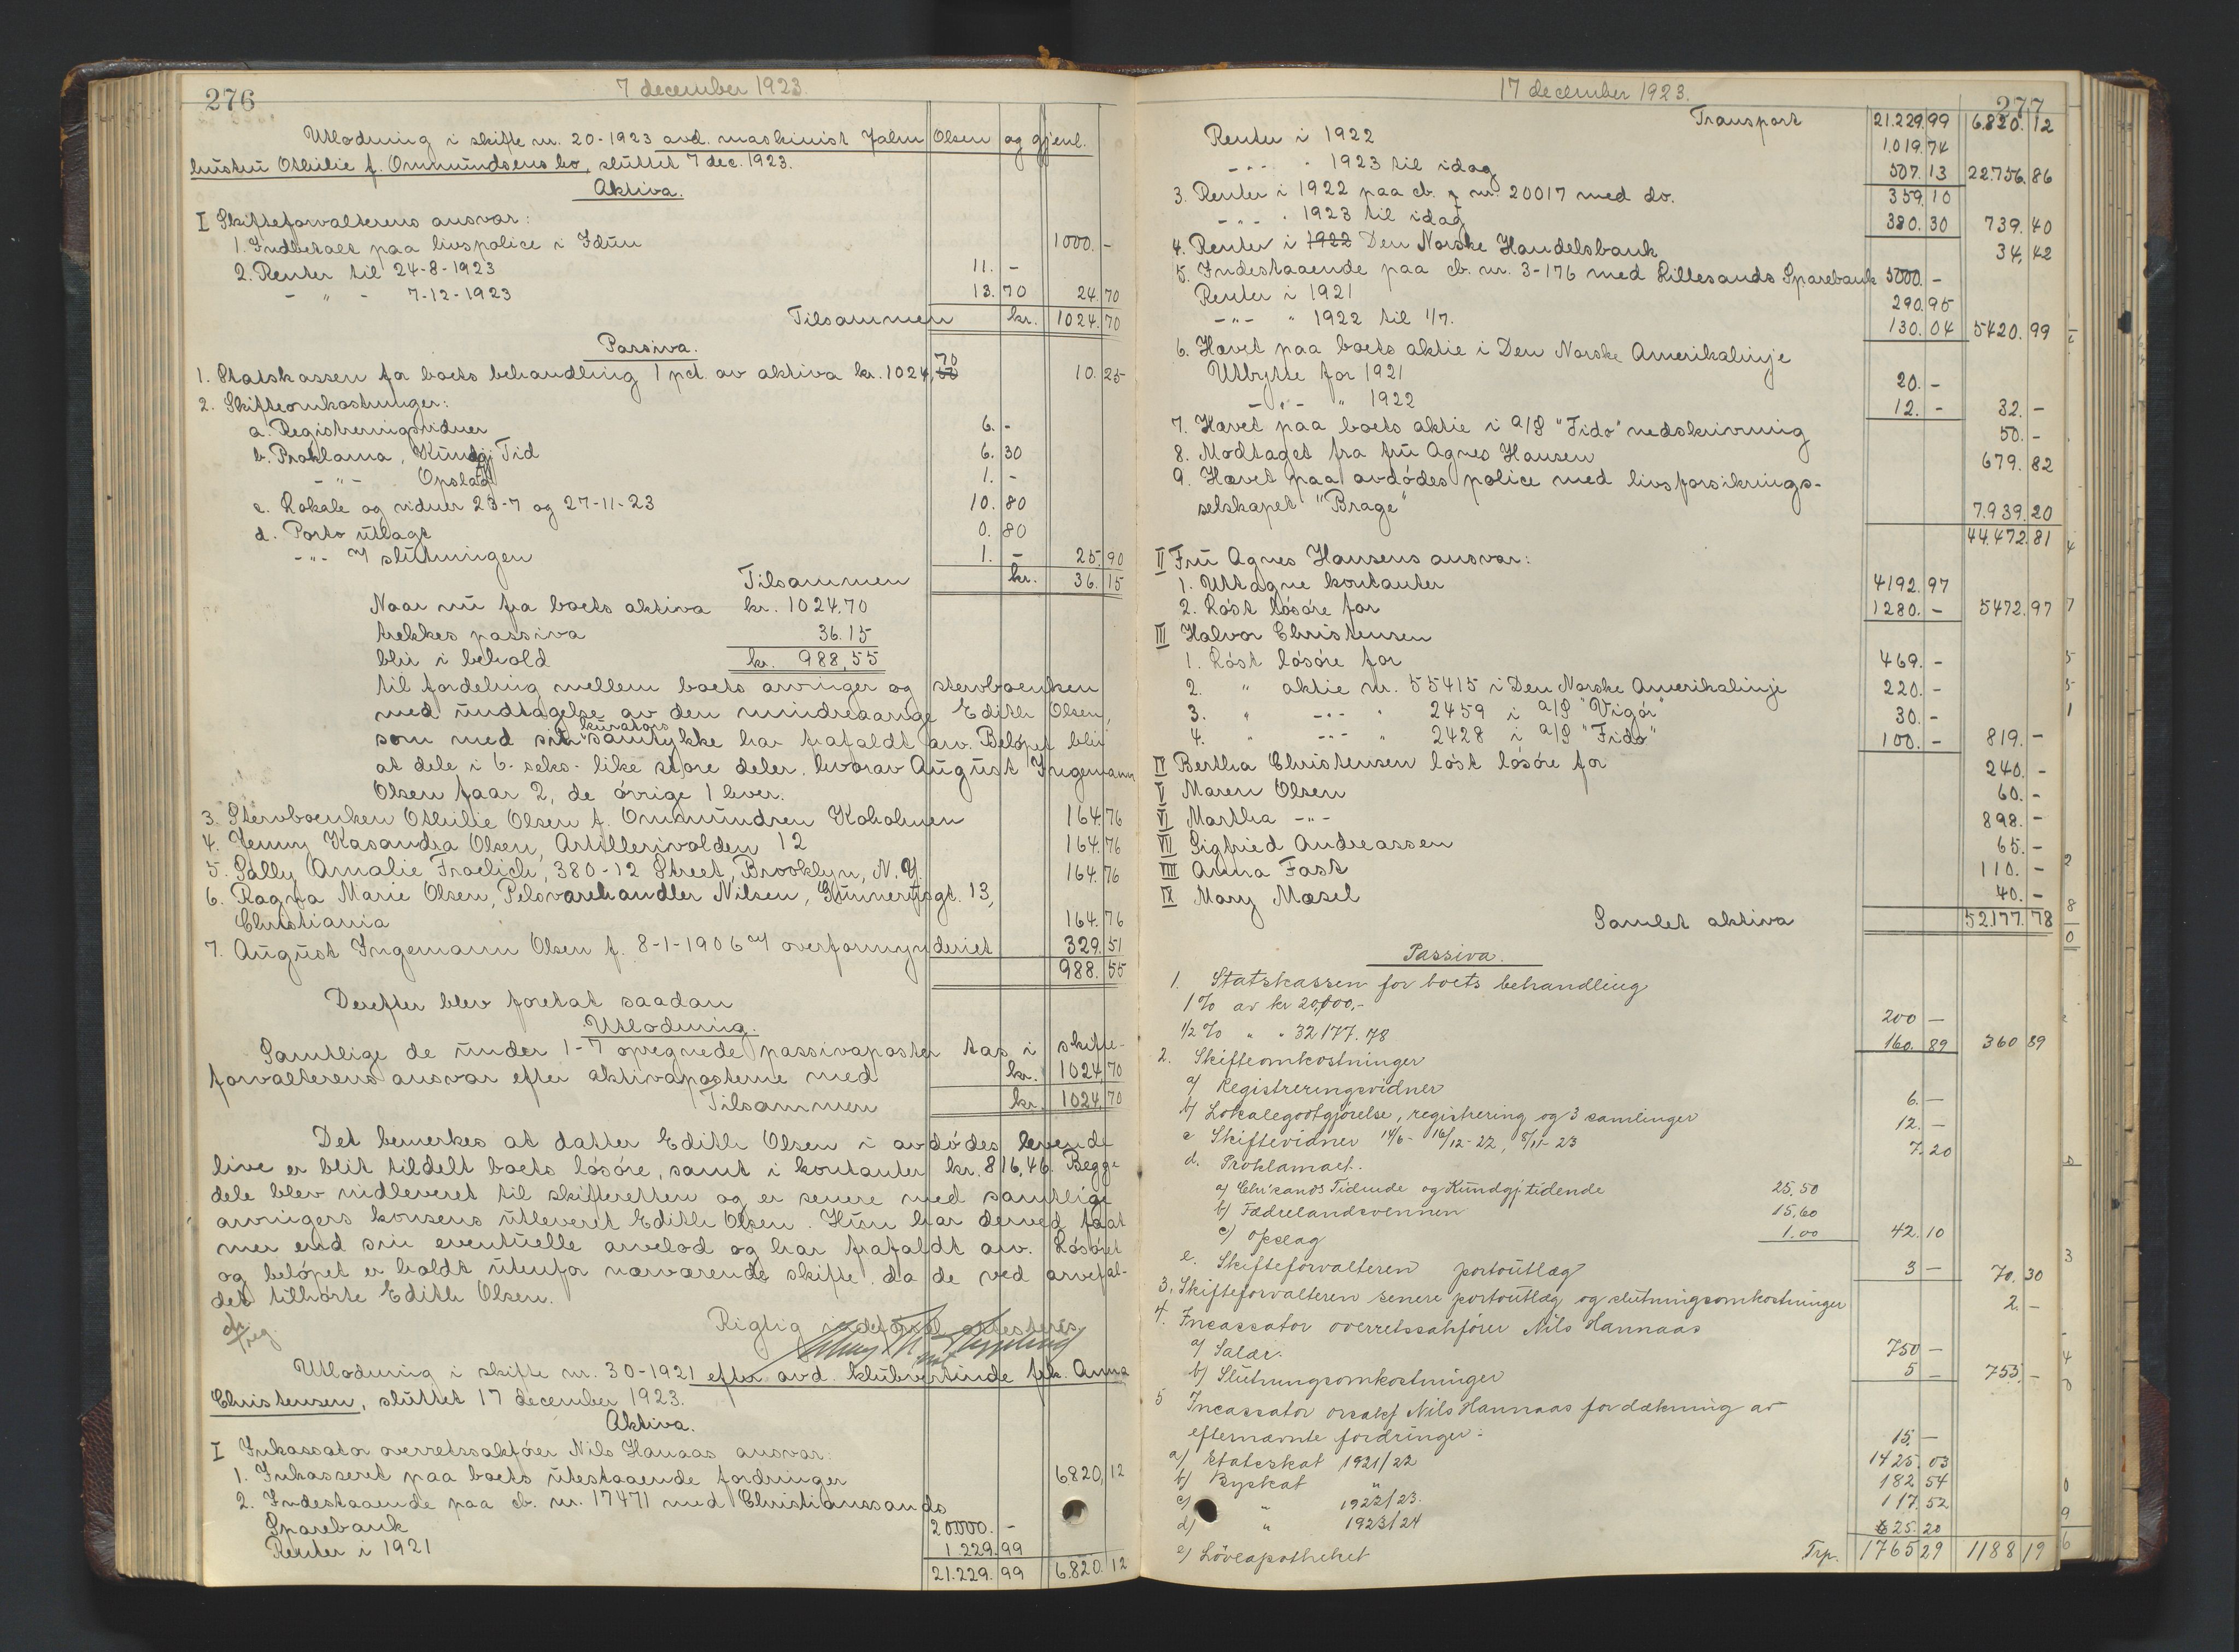 276
7 december 1923.
Utlodning i skifte nr. 20-1923 avd. maskinist Jalm Olsen og gjenl.
hustru Othilie f. Ommundsens bo, sluttet 7 dec. 1923.
Aktiva.
I Skifteforvalterens ansvar:
1. Indbetalt paa livspolice i Idun 1000. -
2. Renter til 24-8-1923 11. -
- " - 7-12-1923 13.70 24.70
Tilsammen kr. 1024.70
Passiva.
1. Statskassen for boets behandling 1 pct. av aktiva kr. 1024,70 10.25
2. Skifteomkostninger:
a. Registreringsvidner 6. -
b. Proklama, Kundgj Tid 6.30
- " - Opslag 1. -
c. Lokale og vidner 23-7 og 27-11-23 10.80
d. Porto utlagt 0.80
- " - v/ slutningen 1. - 25.90
Tilsammen kr. 36.15
Naar nu fra boets aktiva kr. 1024.70
trekkes passiva 36.15
blir i behold kr. 988,55
til fordeling mellem boets arvinger og stervboenken
med undtagelse av den mindreaarige Edith Olsen,
som med sin kurators samtykke har frafaldt arv. Beløpet blir
at dele i 6 - seks - like store deler, hvorav August Ingemann
Olsen faar 2, de øvrige 1 hver.
3. Stervboenken Othilie Olsen f. Ommundsen Kokolmen 164.76
4. Jenny Kasandra Olsen, Artillerivolden 12 164.76
5. Sally Amalie Fraelich, 380-12 Street, Brooklyn, N.Y. 164.76
6. Ragna Marie Olsen, Pelsvarehandler Nilsen, Grünnersgt. 13,
Christiania 164.76
7. August Ingemann Olsen f. 8-1-1906 v/ overformynderiet 329.51
988.55
Derefter blev foretat saadan
Utlodning.
Samtlige de under 1-7 opregnede passivaposter tas i skifte-
forvalterens ansvar efter aktivaposterne med kr. 1024.70
Tilsammen kr. 1024.70
Det bemerkes at datter Edith Olsen i avdødes levende
live er blit tildelt boets løsøre, samt i kontanter kr. 816,46. Begge
dele blev indleveret til skifteretten og er senere med samtlige
arvingers konsens utleveret Edith Olsen. Hun har derved faat
mer end sin eventuelle arvelod og har frafaldt arv. Løsøret
og beløpet er holdt utenfor nærværende skifte. da de ved arvefal-
det tilhørte Edith Olsen.
Rigtig indført attesteres
Utlodning i skifte nr. 30-1921 efter avd. klubvertinde frk. Anna
Christensen, sluttet 17 december 1923.
Aktiva.
I Inkassator overretssakfører Nils Hanaas ansvar:
1. Inkasseret paa boets utestaaende fordringer 6820,12
2. Indestaaende paa cb. nr. 17471 med Christianssands
Sparebank 20000. -
Renter i 1921 1.229.99
21.229.99 6.820.12
17 december 1923.
277
Transport 21.229.99 6.820.12
Renter i 1922 1.019.74
- " - " 1923 til idag 507.13 22.756.86
3. Renter i 1922 paa cb. nr. 20017 med do. 359.10
- " - " 1923 til idag 380.30 739.40
4. Renter i 1922 Den Norske Handelsbank 34,42
5. Indestaaende paa cb. nr. 3-176 med Lillesands Sparebank 5000. -
Renter i 1921 290.95
- " - " 1922 til 1/7. 130.04 5420.99
6. Hævet paa boets aktie i Den Norske Amerikalinje
Utbytte for 1921 20. -
- " - " 1922 12. - 32. -
7. Hævet paa boets aktie i A/S "Fido" nedskrivning 50. -
8. Modtaget fra fru Agnes Hansen 679.82
9. Hævet paa avdødes police med livsforsikrings-
selskapet "Brage" 7.939.20
44.472.81
II Fru Agnes Hansens ansvar:
1. Uttagne kontanter 4192.97
2. Løst løsøre for 1280. - 5472.97
III Halvor Christensen
1. Løst løsøre for 469. -
2. " aktie nr. 55415 i Den Norske Amerikalinje 220. -
3. " - " - " 2459 i A/S "Vigør" 30. -
4. " - " - " 2428 i A/S "Fido" 100. - 819. -
IV Bertha Christensen løst løsøre for 240. -
V Maren Olsen 60. -
VI Martha - " - 898. -
VII Sigfried Andreassen 65. -
VIII Anna Fast 110. -
IX Mary Mæsel 40. -
Samlet aktiva 52.177.78
Passiva.
1. Statskassen for boets behandling
1 % av kr 20,000,- 200 -
1/2 % " " 32177.78 160.89 360 89
2. Skifteomkostninger
a) Registreringsvidner 6. -
b) Lokalegodtgjørelse, registrering og 3 samlinger 12. -
c Skiftevidner 14/6 - 16/12 - 22, 8/11 - 23 7.20
d. Proklamaet.
a) Chr'sands Tidende og Kundgj tidende 25.50
b) Fædrelandsvennen 15.60
c) opslag 1.00 42.10
e. Skifteforvalteren portoutlæg 3 - 70.30
3. Skifteforvalteren senere portoutlæg og slutningsomkostninger 2. -
4. Incassator overretssakfører Nils Hannaas
a) Salær. 750 -
b) Slutningsomkostninger 5 - 755. -
5 Incassator orsakf Nils Hannaas for dækning av
efternævnte fordringer: 15. -
a) Statsskat 1921/22 1425.03
b) Byskat " 182 54
c) " 1922/23. 117.52
d) " 1923/24 25.20
e) Löveapotheket Trp. 1765 29 1188 19